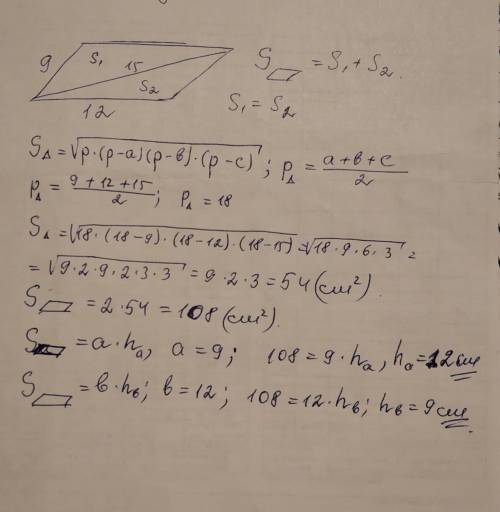 9 S₁ 15 S₂ 12
S▱ = S₁ + S₂.
S₁ = S₂
S△ = √(p·(p−a)(p−в)·(p−c)); p△ = (a+в+c)/2
p△ = (9+12+15)/2; p△ = 18
S△ = √(18·(18−9)·(18−12)·(18−15)) = √(18·9·6·3) =
= √(9·2·9·2·3·3) = 9·2·3 = 54 (см²).
S▱ = 2·54 = 108 (см²).
S▱ = a·hₐ, a = 9; 108 = 9·hₐ, hₐ = 12 см
S▱ = в·hв; в = 12; 108 = 12·hв; hв = 9 см.